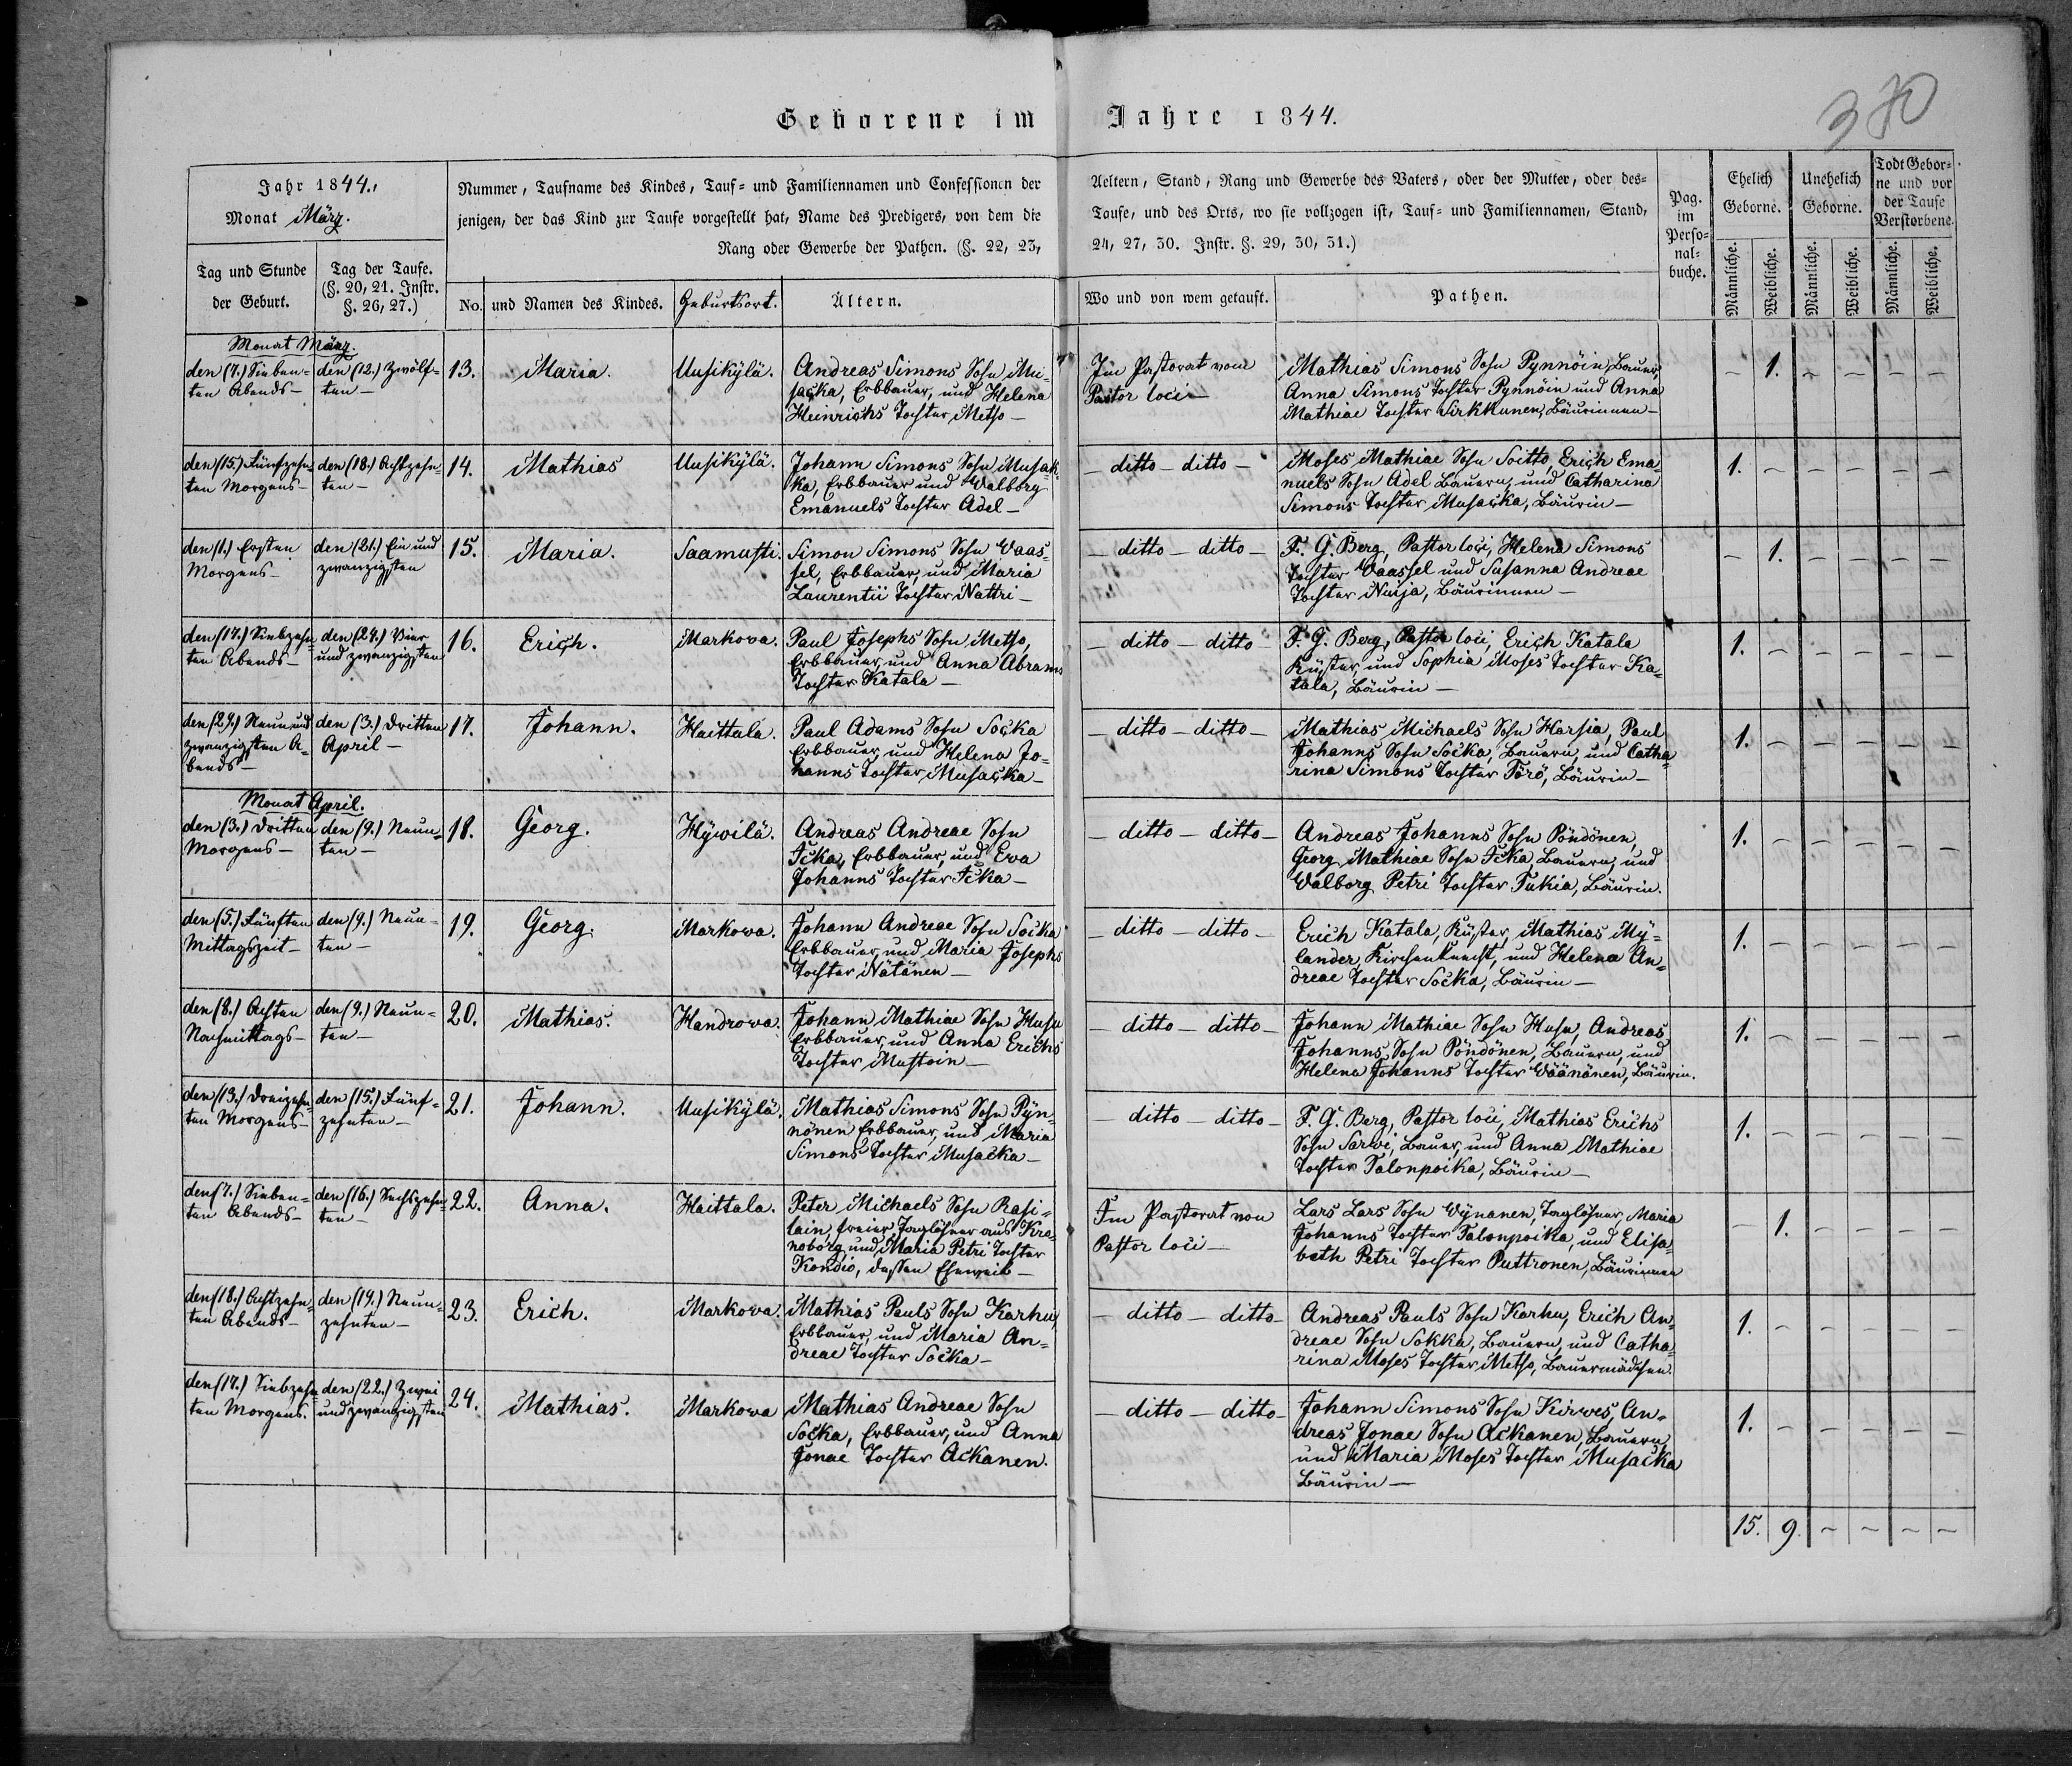 Geborene im Jahre 1844.
370
Jahr 1844.,
Monat März.
Nummer, Taufname des Kindes, Tauf= und Familiennamen und Confessionen der
jenigen, der das Kind zur Taufe vorgestellt hat, Name des Predigers, von dem die
Rang oder Gewerbe der Pathen. (§. 22, 23,
Aeltern, Stand, Rang und Gewerbe des Vaters, oder der Mutter, oder des=
Taufe, und des Orts, wo sie vollzogen ist, Tauf= und Familiennamen, Stand,
24, 27, 30. Instr. §. 29, 30, 31.)
Pag. im Perso= nal= buche.
Ehelich Geborne.
Unehelich Geborne.
Todt Gebor= ne und vor der Taufe Verstorbene.
Tag und Stunde der Geburt.
Tag der Taufe. (§. 20, 21. Instr. §. 26, 27.)
No. und Namen des Kindes. Geburtsort. Ältern.
Wo und von wem getauft. Pathen.
Männliche. Weibliche. Männliche. Weibliche. Männliche. Weibliche.
Monat März.
den (7.) Sieben=
ten Abends —
den (12.) Zwölf=
ten —
13. Maria. Uusikylä.
Andreas Simons Sohn Mu=
sacka, Erbbauer, und Helena
Heinrichs Tochter Metso —
Im Pastorat vom
Pastor loci —
Mathias Simons Sohn Pynnöin, Bauer,
Anna Simons Tochter Pynnöin und Anna
Mathiae Tochter Sirkkunen, Bäurinnen —
— 1. — — — —
den (15.) Fünfzehn=
ten Morgens —
den (18.) Achtzehn=
ten —
14. Mathias Uusikylä.
Johann Simons Sohn Musak=
ka, Erbbauer und Walborg
Emanuels Tochter Adel —
— ditto — ditto —
Moses Mathiae Sohn Soitto, Erich Ema=
nuels Sohn Adel Bauern, und Catharina
Simons Tochter Musacka, Bäurin —
1. — — — — —
den (1.) Ersten
Morgens —
den (21.) Ein und
zwanzigsten
15. Maria. Saamusti.
Simon Simons Sohn Waas=
sel, Erbbauer, und Maria
Laurentii Tochter Nattri —
— ditto — ditto —
F. G. Berg, Pastor loci, Helena Simons
Tochter Waassel und Susanna Andreae
Tochter Nuija, Bäurinnen —
— 1. — — — —
den (17.) Siebzehn=
ten Abends —
den (24.) Vier
und zwanzigsten
16. Erich. Markova.
Paul Josephs Sohn Metso,
Erbbauer, und Anna Abrams
Tochter Katala —
— ditto — ditto —
F. G. Berg, Pastor loci, Erich Katala
Küster, und Sophia Moses Tochter Ka=
tala, Bäurin —
1. — — — — —
den (29.) Neun und
zwanzigsten A=
bends —
den (3.) Dritten
April —
17. Johann. Haittala.
Paul Adams Sohn Socka
Erbbauer, und Helena Jo=
hanns Tochter Musacka —
— ditto — ditto —
Mathias Michaels Sohn Harsia, Paul
Johanns Sohn Socka, Bauern, und Catha=
rina Simons Tochter Törö, Bäurin —
1. — — — — —
Monat April.
den (3.) Dritten
Morgens —
den (9.) Neun=
ten —
18. Georg. Hywilä.
Andreas Andreae Sohn
Icka, Erbbauer, und Eva
Johanns Tochter Icka —
— ditto — ditto —
Andreas Johanns Sohn Pöndönen,
Georg Mathiae Sohn Icka, Bauern, und
Walborg Petri Tochter Tukia, Bäurin.
1. — — — — —
den (5.) Fünften
Mittagszeit —
den (9.) Neun=
ten —
19. Georg. Markowa.
Johann Andreae Sohn Socka
Erbbauer, und Maria Josephs
Tochter Nätänen —
— ditto — ditto —
Erich Katala, Küster, Mathias My=
lander, Kirchenknecht, und Helena An=
dreae Tochter Socka, Bäurin —
1. — — — — —
den (8.) Achten
Nachmittags —
den (9.) Neun=
ten —
20. Mathias. Handrowa.
Johann Mathiae Sohn Huhu
Erbbauer, und Anna Erichs
Tochter Mustoin —
— ditto — ditto —
Johann Mathiae Sohn Huhu, Andreas
Johanns Sohn Pöndönen, Bauern, und
Helena Johanns Tochter Wäänänen, Bäurin.
1. — — — — —
den (13.) Dreizehn=
ten Morgens —
den (15.) Fünf=
zehnten —
21. Johann. Uusikylä.
Mathias Simons Sohn Pyn=
nönen Erbbauer, und Maria
Simons Tochter Musacka —
— ditto — ditto —
F. G. Berg, Pastor loci, Mathias Erichs
Sohn Sarwi, Bauer, und Anna Mathiae
Tochter Talonpoika, Bäurin —
1. — — — — —
den (7.) Sieben=
ten Abends —
den (16.) Sechszehn=
ten —
22. Anna. Haittala.
Peter Michaels Sohn Rasi=
lain, freier Taglöhner aus Kro=
noborg und Maria Petri Tochter
Kondio, dessen Eheweib —
Im Pastorat von
Pastor loci —
Lars Lars Sohn Wynanen, Taglöhner, Maria
Johanns Tochter Talonpoika, und Elisa=
beth Petri Tochter Puttronen, Bäurinnen
— 1. — — — —
den (18.) Achtzehn=
ten Abends —
den (19.) Neun=
zehnten —
23. Erich. Markowa.
Mathias Pauls Sohn Karhu,
Erbbauer, und Maria An=
dreae Tochter Socka —
— ditto — ditto —
Andreas Pauls Sohn Karhu, Erich An=
dreae Sohn Sokka, Bauern, und Catha=
rina Moses Tochter Metso, Bauermädchen.
1. — — — — —
den (17.) Siebzehn=
ten Morgens.
den (22.) Zwei
und zwanzigsten
24. Mathias. Markowa
Mathias Andreae Sohn
Socka, Erbbauer, und Anna
Jonae Tochter Ackanen.
— ditto — ditto —
Johann Simons Sohn Kirwes, An=
dreas Jonae Sohn Ackanen, Bauern
und Maria Moses Tochter Musacka
Bäurin —
1. — — — — —
15. 9. — — — —